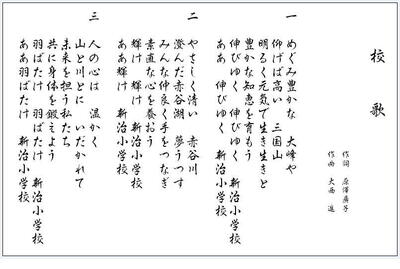 校歌
作詞 原澤廣子
作曲 大西進
一
めぐみ豊かな 大峰や
仰げば高い 三国山
明るく元気で生き生きと
豊かな知恵を育もう
伸びゆく 伸びゆく 新治小学校
ああ 伸びゆく 新治小学校
二
やさしく清い 赤谷川
澄んだ赤谷湖 夢うつす
みんな仲良く手をつなぎ
素直な心を養おう
輝け 輝け 新治小学校
ああ輝け 新治小学校
三
人の心は 温かく
山と川とに いだかれて
未来を担う私たち
共に身体を鍛えよう
羽ばたけ 羽ばたけ 新治小学校
ああ羽ばたけ 新治小学校